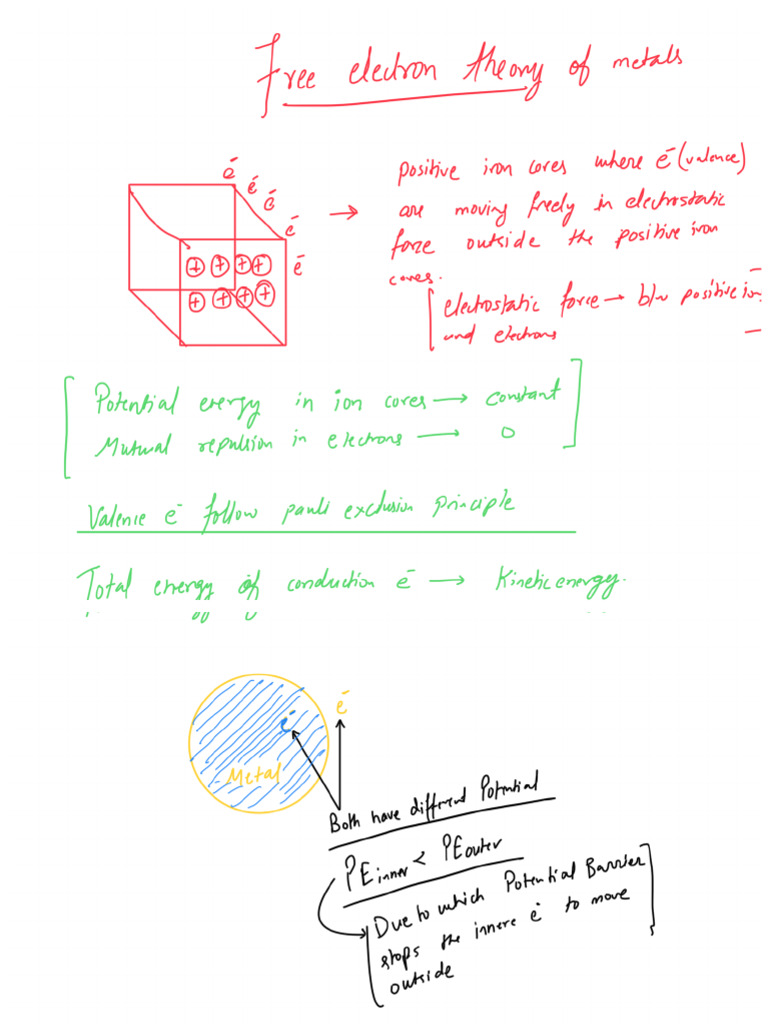 Free electron theory of metals
e⁻
e⁻
e⁻
e⁻
e⁻
+ + + +
+ + + +
→ positive iron cores where e⁻ (valence)
are moving freely in electrostatic
force outside the positive iron
cores.
[electrostatic force → b/w positive ion
and electrons
[Potential energy in ion cores → constant
Mutual repulsion in electrons → 0]
Valence e⁻ follow pauli exclusion principle
Total energy of conduction e⁻ → Kinetic energy.
e⁻
e⁻
Metal
Both have different Potential
PE inner < PE outer
[Due to which Potential Barrier
stops the innere e⁻ to move
outside]